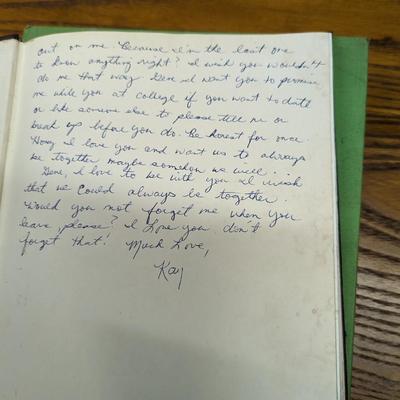 out on me because I'm the last one
to know anything right? I wish you wouldn't
do me that way Gene I want you to promise
me while you at college if you want to date
or like someone else to please tell me or
break up before you do. Be honest for once.
Honey I love you and want us to always
be together maybe somehow we will...
Gene, I love to be with you I wish
that we could always be together.
Would you not forget me when you
leave, please? I Love you don't
forget that! Much Love,
Kay